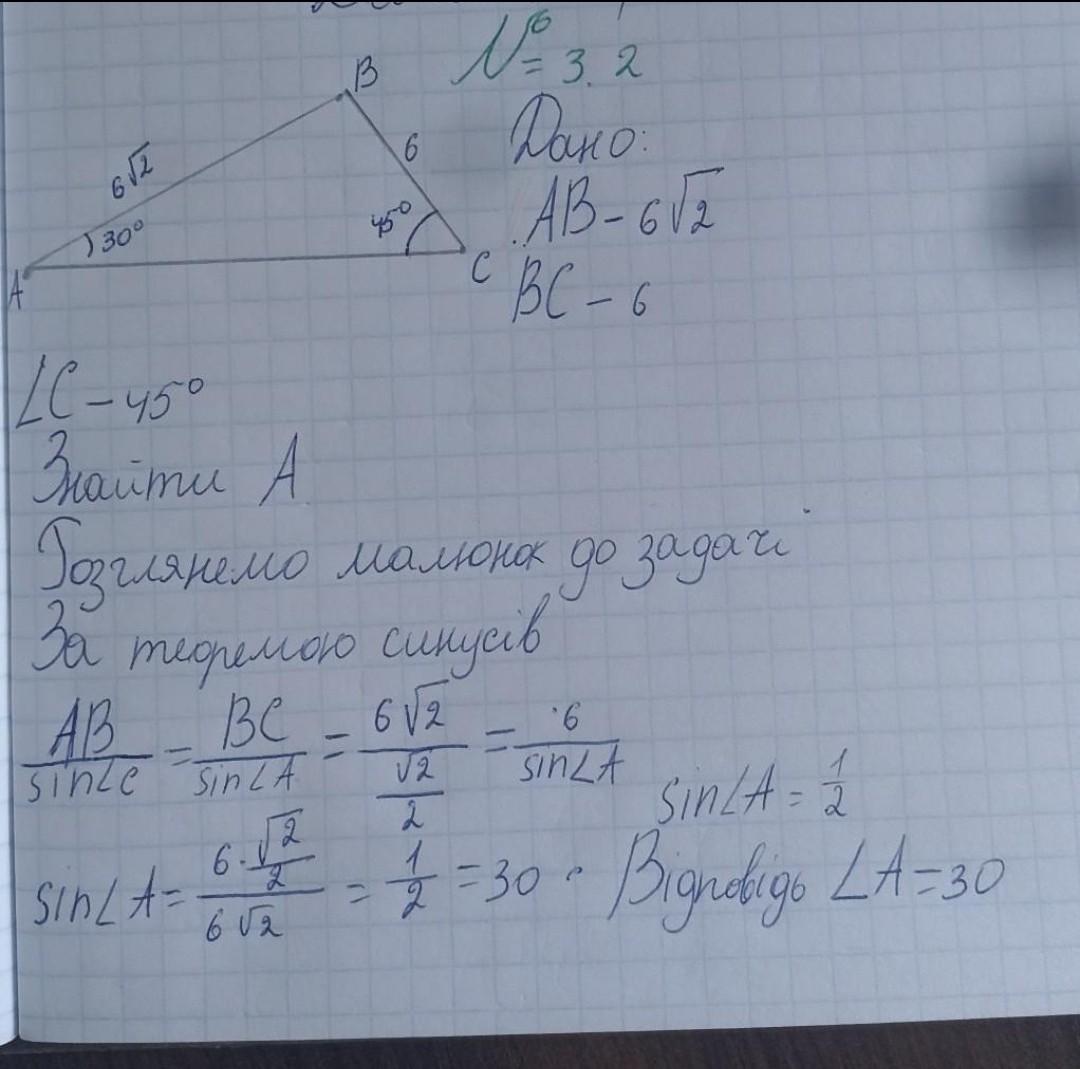 № 3.2
B
6√2
6
30°
45°
A
C
Дано:
AB – 6√2
BC – 6
∠C – 45°
Знайти A
Розглянемо малюнок до задачі
За теоремою синусів
AB/sin∠C = BC/sin∠A = 6√2/(√2/2) = 6/sin∠A
sin∠A = 1/2
sin∠A = (6·√2/2)/(6√2) = 1/2 = 30 · Відповідь ∠A = 30